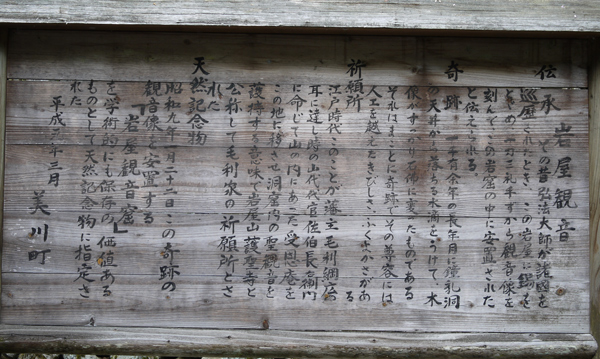 岩屋観音
伝承 その昔弘法大師が諸国を
巡歴されたとき この岩屋に錫を
とどめ一刀三礼手ずから観音像を
刻んでこの岩窟の中に安置された
と伝えられる
奇跡 一千有余年の長年月に鐘乳洞
の天井から落ちる水滴をうけて 木
像がすっかり石像に変ったものである
それはまことに奇跡でその尊容には
人工を越えたきびしさふくよかさがあ
る
祈願所
江戸時代このことが藩主毛利綱広
耳に達し時の山代代官佐伯長右衛門
に命じて山の内にあった受円庵を
この地に移させ洞窟内の聖観音を
護持する意味で岩屋山護聖寺と
公称して毛利家の祈願所とさ
れた
天然記念物
昭和九年一月二十二日この奇跡の
観音像を安置する
「岩屋観音窟」
を学術的にも保存の価値ある
ものとして天然記念物に指定さ
れた
平成三年三月 美川町